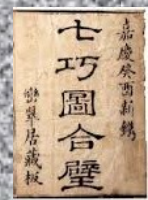 嘉慶癸酉新鐫
七巧圖合璧
巒翠居藏板